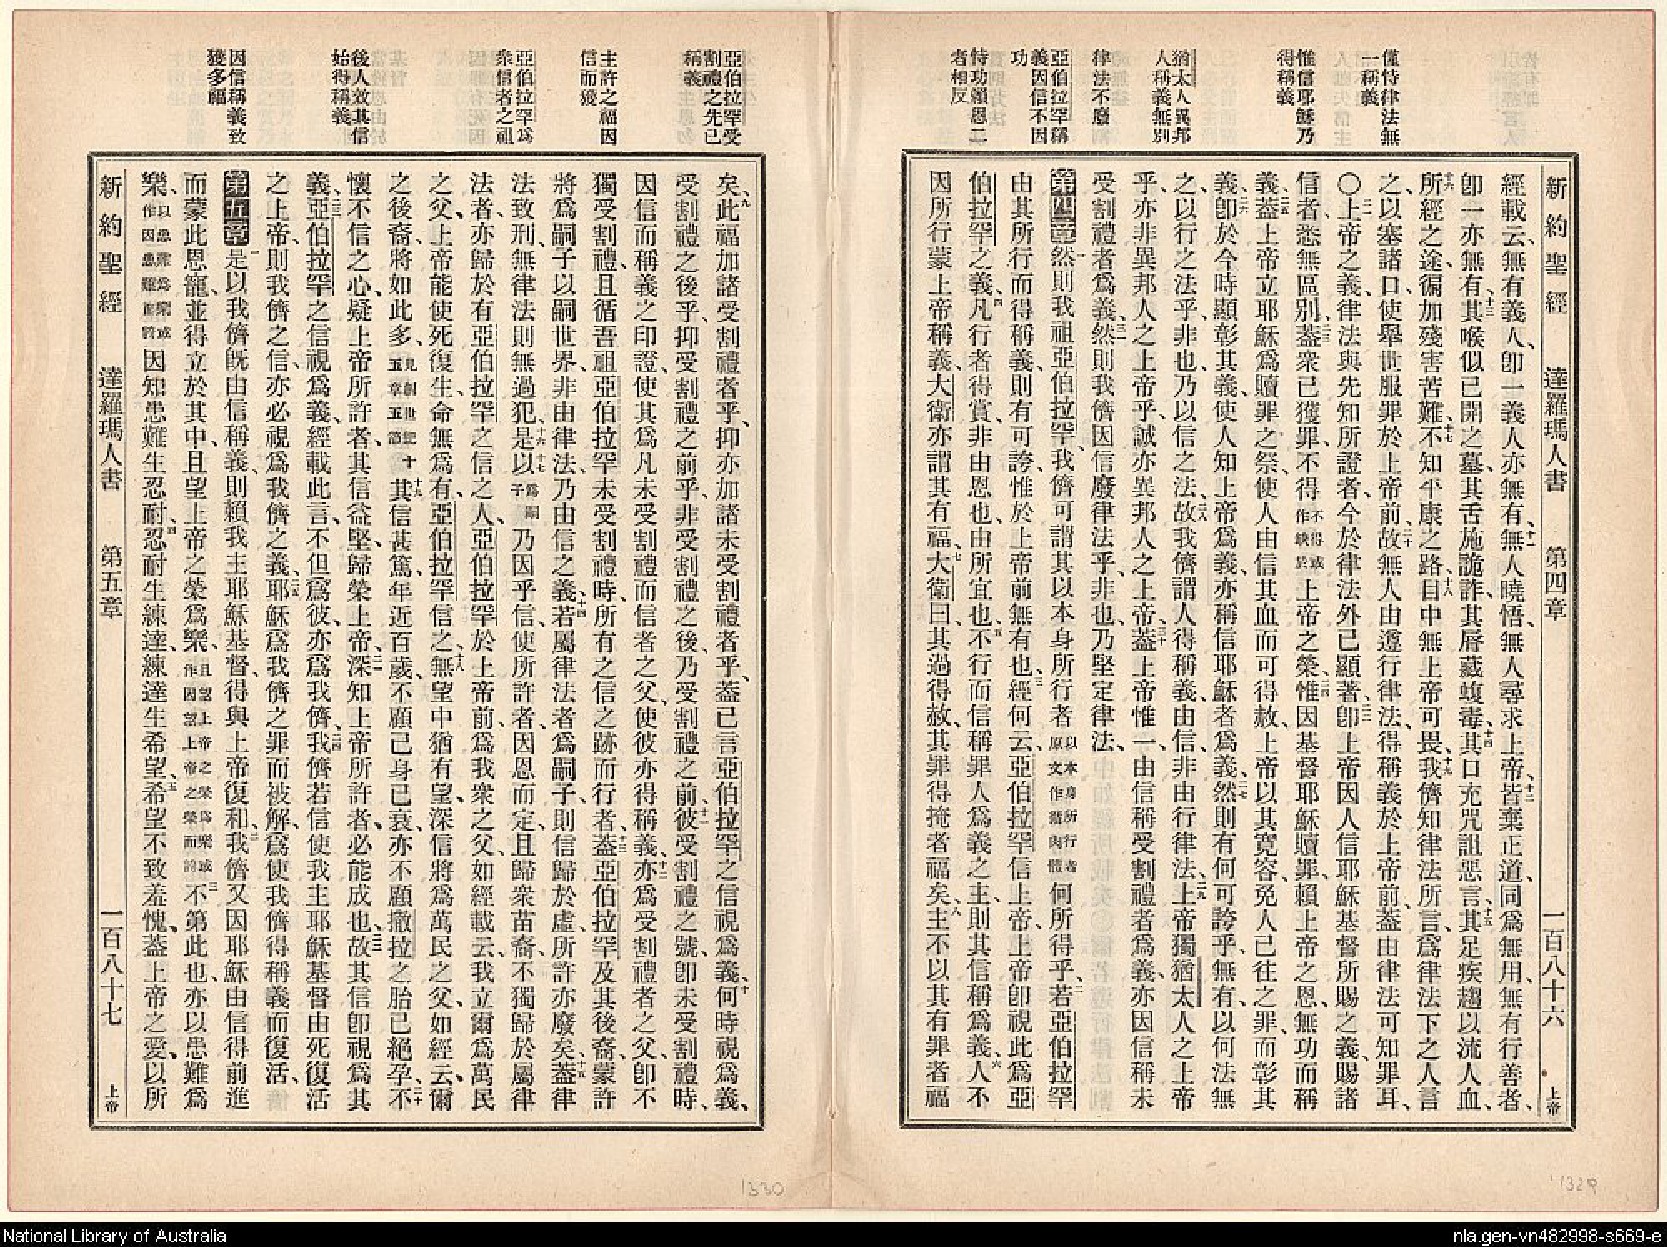 僅恃律法無
一稱義
惟信耶穌乃
得稱義
猶太人異邦
人稱義無別
律法不廢
亞伯拉罕稱
義因信不因
功
恃功賴恩二
者相反
新約聖經 達羅瑪人書 第四章 一百八十六 上帝
經載云、無有義人、卽一義人亦無有、十一無人曉悟、無人尋求上帝、十二皆棄正道、同爲無用、無有行善者、
卽一亦無有、十三其喉似已開之墓、其舌施詭詐、其脣藏蝮毒、十四其口充咒詛惡言、十五其足疾趨以流人血、
十六所經之途、徧加殘害苦難、十七不知平康之路、十八目中無上帝可畏、十九我儕知律法所言、爲律法下之人言
之、以塞諸口、使舉世服罪於上帝前、二十故無人由遵行律法、得稱義於上帝前、蓋由律法可知罪耳、
〇二一上帝之義、律法與先知所證者、今於律法外已顯著、二二卽上帝因人信耶穌基督所賜之義、賜諸
信者、悉無區別、二三蓋衆已獲罪、不得不得或作缺於上帝之榮、二四惟因基督耶穌贖罪、賴上帝之恩、無功而稱
義、二五蓋上帝立耶穌爲贖罪之祭、使人由信其血而可得赦、上帝以其寬容、免人已往之罪、而彰其
義、二六卽於今時顯彰其義、使人知上帝爲義、亦稱信耶穌者爲義、二七然則有何可誇乎、無有、以何法無
之、以行之法乎、非也、乃以信之法、二八故我儕謂人得稱義、由信、非由行律法、二九上帝獨猶太人之上帝
乎、亦非異邦人之上帝乎、誠亦異邦人之上帝、三十蓋上帝惟一、由信稱受割禮者爲義、亦因信稱未
受割禮者爲義、三一然則我儕因信廢律法乎、非也、乃堅定律法、
第四章一然則我祖亞伯拉罕、我儕可謂其以本身所行者以本身所行者原文作循肉體何所得乎、二若亞伯拉罕
由其所行而得稱義、則有可誇、惟於上帝前無有也、三經何云、亞伯拉罕信上帝、上帝卽視此爲亞
伯拉罕之義、四凡行者得賞、非由恩也、由所宜也、五不行而信稱罪人爲義之主、則其信稱爲義、六人不
因所行、蒙上帝稱義、大衛亦謂其有福、七大衛曰、其過得赦、其罪得掩者福矣、八主不以其有罪者福
亞伯拉罕受
割禮之先已
稱義
主許之福因
信而獲
亞伯拉罕爲
衆信者之祖
後人效其信
始得稱義
因信稱義致
獲多福
矣、九此福加諸受割禮者乎、抑亦加諸未受割禮者乎、蓋已言亞伯拉罕之信、視爲義、十何時視爲義、
受割禮之後乎、抑受割禮之前乎、非受割禮之後、乃受割禮之前、十一彼受割禮之號、卽未受割禮時、
因信而稱義之印證、使其爲凡未受割禮而信者之父、使彼亦得稱義、十二亦爲受割禮者之父、卽不
獨受割禮、且循吾祖亞伯拉罕未受割禮時、所有之信之跡而行者、十三蓋亞伯拉罕及其後裔、蒙許
將爲嗣子、以嗣世界、非由律法、乃由信之義、十四若屬律法者爲嗣子、則信歸於虛、所許亦廢矣、十五蓋律
法致刑、無律法則無過犯、十六是以十七爲嗣子乃因乎信、使所許者、因恩而定、且歸衆苗裔、不獨歸於屬律
法者、亦歸於有亞伯拉罕之信之人、亞伯拉罕於上帝前、爲我衆之父、如經載云、我立爾爲萬民
之父、上帝能使死復生、命無爲有、亞伯拉罕信之、十八無望中猶有望、深信將爲萬民之父、如經云、爾
之後裔、將如此多、見創世記十五章五節十九其信甚篤、年近百歲、不顧己身已衰、亦不顧撒拉之胎已絕孕、二十不
懷不信之心、疑上帝所許者、其信益堅、歸榮上帝、二一深知上帝所許者、必能成也、二二故其信卽視爲其
義、二三亞伯拉罕之信、視爲義、經載此言、不但爲彼、亦爲我儕、二四我儕若信使我主耶穌基督由死復活
之上帝、則我儕之信、亦必視爲我儕之義、二五耶穌爲我儕之罪而被解、爲使我儕得稱義而復活、
第五章一是以我儕旣由信稱義、則賴我主耶穌基督、得與上帝復和、二我儕又因耶穌、由信得前進
而蒙此恩寵、並得立於其中、且望上帝之榮爲樂、且望上帝之榮爲樂或作因望上帝之榮而誇三不第此也、亦以患難爲
樂、以患難爲樂或作因患難而誇因知患難生忍耐、四忍耐生練達、練達生希望、五希望不致羞愧、蓋上帝之愛、以所
新約聖經 達羅瑪人書 第五章 一百八十七 上帝
1330
1329
National Library of Australia
nla.gen-vn482998-s669-e